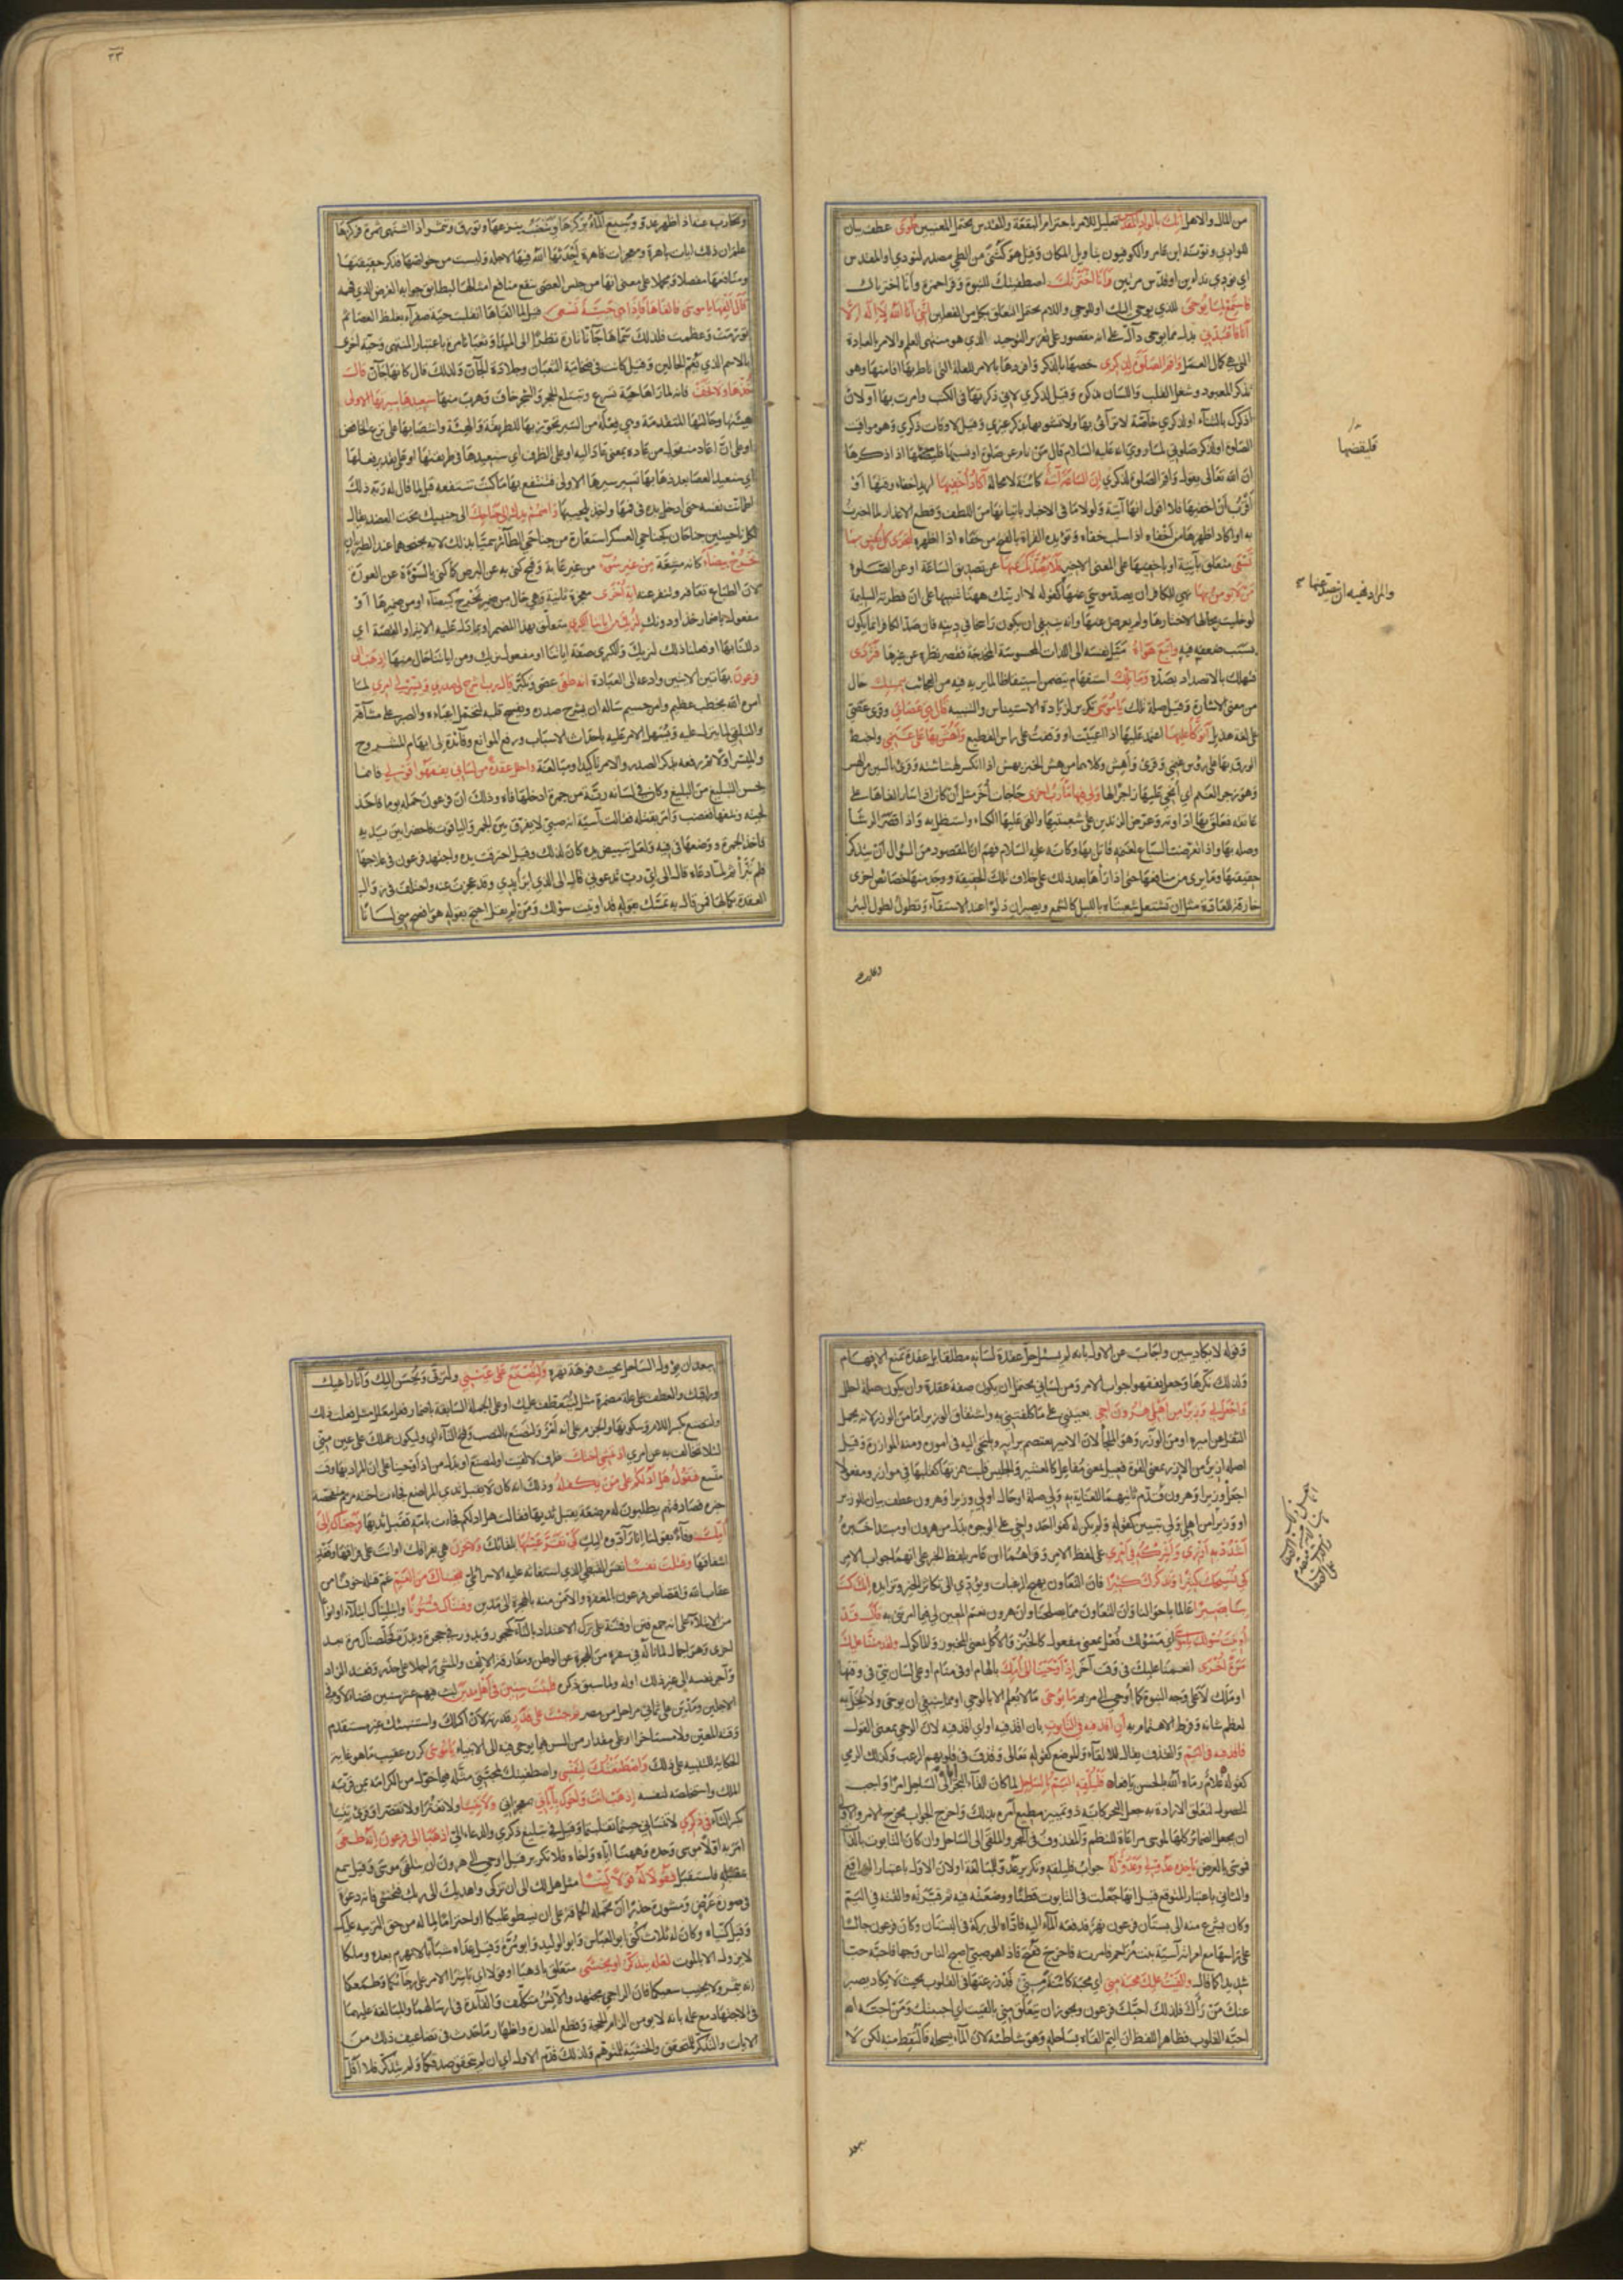 من المال والاهل انك بالواد المقدس تعليل للامر باحترام البقعة والمقدس يحتمل المعنيين طوى عطف بيان
للوادي ونونه ابن عامر والكوفيون بتاويل المكان وقيل هو كثنى من الطي مصدر لنودي او المقدس
اي نودي نداءين او قدس مرتين وانا اخترتك اصطفيتك للنبوة وقرا حمزة وانا اخترناك
فاستمع لما يوحى للذي يوحى اليك او للوحي واللام يحتمل التعلق بكل من الفعلين انني انا الله لا اله الا
انا فاعبدني بدل مما يوحى دال على انه مقصور على تقرير التوحيد الذي هو منتهى العلم والامر بالعبادة
التي هي كمال العمل واقم الصلوة لذكري خصها بالذكر وافردها بالامر للعلة التي ناط بها اقامتها وهو
تذكر المعبود وشغل القلب واللسان بذكره وقيل لذكري لاني ذكرتها في الكتب وامرت بها او لان
اذكرك بالثناء او لذكري خاصة لا ترائي بها ولا تشوبها بذكر غيري وقيل لاوقات ذكري وهو مواقيت
الصلوة او لذكر صلوتي لما روي انه عليه السلام قال من نام عن صلوة او نسيها فليصلها اذا ذكرها
ان الله تعالى يقول واقم الصلوة لذكري ان الساعة اتية كائنة لا محالة اكاد اخفيها اريد اخفاء وقتها او
اقرب ان اخفيها فلا اقول انها آتية ولولا ما في الاخبار باتيانها من اللطف وقطع الاعذار لما اخبرت
به او اكاد اظهرها من اخفاه اذا سلب خفاءه ويؤيده القراة بالفتح من خفاه اذا اظهره لتجزى كل نفس بما
تسعى متعلق بآتية او باخفيها على المعنى الاخير فلا يصدنك عنها عن تصديق الساعة او عن الصلوة
من لا يؤمن بها نهي الكافر ان يصد موسى عنها كقوله لا ارينك ههنا تنبيها على ان فطرته السليمة
لو خليت بحالها لاختارها ولم يعرض عنها وانه ينبغي ان يكون راسخا في دينه فان صد الكافر انما يكون
بسبب ضعفه فيه واتبع هواه ميل نفسه الى اللذات المحسوسة المخدجة فقصر نظره عن غيرها فتردى
فتهلك بالانصداد بصده وما تلك استفهام يتضمن استيقاظا لما يريه فيه من العجائب بيمينك حال
من معنى الاشارة وقيل صلة تلك يا موسى تكرير لزيادة الاستيناس والتنبيه قال هي عصاي وقرئ عصي
على لغة هذيل اتوكا عليها اعتمد عليها اذا اعييت او وقفت على راس القطيع واهش بها على غنمي واخبط
الورق بها على رؤس غنمي وقرئ واهش وكلاهما من هش الخبز يهش اذا انكسر لهشاشته وقرئ بالسين من الهس
وهو زجر الغنم اي انحي عليها زاجرا لها ولي فيها مآرب اخرى حاجات اخر مثل ان كان اذا سار القاها على
عاتقه فعلق بها اداوته وعرض الزندين على شعبتيها والقى عليها الكساء واستظل به واذا قصر الرشاء
وصله بها واذا تعرضت السباع لغنمه قاتل بها وكانه عليه السلام فهم ان المقصود من السؤال ان يتذكر
حقيقتها وما يرى من منافعها حتى اذا رآها بعد ذلك على خلاف تلك الحقيقة ووجد منها خصائص اخرى
خارقة للعادة مثل ان تشتعل شعبتاه بالليل كالشمع ويصيران دلوا عند الاستقاء وتطول لطول البئر
فليقضها
والمراد نهيه ان يصد عنها
٣٣
وتحارب عنه اذا ظهر عدو وينبع الماء بركزها وينضب بنزعها وتورق وتثمر اذا اشتهى ثمرة فركزها
علم ان ذلك ايات باهرة ومعجزات قاهرة احدثها الله فيها لاجله وليست من خواصها فذكر حقيقتها
ومنافعها مفصلا ومجملا على معنى انها من جنس العصي تنفع منافع امثالها ليطابق جوابه الغرض الذي فهمه
قال القها يا موسى فالقاها فاذا هي حية تسعى قيل لما القاها انقلبت حية صفراء بغلظ العصا ثم
تورمت وعظمت فلذلك سماها جانا تارة نظرا الى المبدا وثعبانا مرة باعتبار المنتهى وحية اخرى
بالاسم الذي يعم الحالين وقيل كانت في ضخامة الثعبان وجلادة الجان ولذلك قال كانها جان قالـ
خذها ولا تخف فانه لما راها حية تسرع وتبتلع الحجر والشجر خاف وهرب منها سنعيدها سيرتها الاولى
هيئتها وحالتها المتقدمة وهي فعلة من السير تجوز بها للطريقة والهيئة وانتصابها على نزع الخافض
او على ان اعاد منقول من عاده بمعنى عاد اليه او على الظرف اي سنعيدها في طريقتها او على تقدير فعلها
اي سنعيد العصا بعد ذهابها تسير سيرتها الاولى فتنتفع بها ما كنت تنتفعه قبل لما قال له ربه ذلك
اطمانت نفسه حتى ادخل يده في فمها واخذ بلحييها واضمم يدك الى جناحك الى جنبك تحت العضد يقال
لكل ناحيتين جناحان كجناحي العسكر استعارة من جناحي الطائر سميا بذلك لانه يجنحهما عند الطيران
تخرج بيضاء كانه مشعة من غير سوء من غير عابة وقبح كنى به عن البرص كما كنى بالسوءة عن العورة
لان الطباع تعافه وتنفر عنه اية اخرى معجزة ثانية وهي حال من ضمير تخرج كبيضاء او من ضميرها او
مفعول باضمار خذ او دونك لنريك من اياتنا الكبرى متعلق بهذا المضمر او بما دل عليه الاية او القصة اي
دللنا بها او فعلنا ذلك لنريك والكبرى صفة اياتنا او مفعول نريك ومن اياتنا حال منها اذهب الى
فرعون بهاتين الايتين وادعه الى العبادة انه طغى عصى وتكبر قال رب اشرح لي صدري ويسر لي امري لما
امره الله بخطب عظيم وامر جسيم ساله ان يشرح صدره ويفسح قلبه لتحمل اعباءه والصبر على مشاقه
والتلقي لما ينزل عليه ويسهل الامر عليه باحداث الاسباب ورفع الموانع وفائدة لي ابهام المشروح
والميسر اولا ثم رفعه بذكر الصدر والامر تاكيدا ومبالغة واحلل عقدة من لساني يفقهوا قولي فانما
يحسن التبليغ من البليغ وكان في لسانه رتة من جمرة ادخلها فاه وذلك ان فرعون حمله يوما فاخذ
لحيته ونتفها فغضب وامر بقتله فقالت آسية انه صبي لا يفرق بين الجمر والياقوت فاحضرا بين يديه
فاخذ الجمرة ووضعها في فيه ولعل تبييض يده كان لذلك وقيل احترقت يده واجتهد فرعون في علاجها
فلم تبرأ ثم لما دعاه قال الى اي رب تدعوني قال الى الذي ابرأ يدي وقد عجزت عنه واختلف في زوال
العقدة بكمالها فمن قال به تمسك بقوله قد اوتيت سؤلك ومن لم يقل احتج بقوله هو افصح مني لسانا
وقوله ولا يكاد يبين واجاب عن الاول بانه لم يسئل حل عقدة لسانه مطلقا بل عقدة تمنع الافهام
ولذلك نكرها وجعل يفقهوا جواب الامر ومن لساني يحتمل ان يكون صفة عقدة وان يكون صلة احلل
واجعل لي وزيرا من اهلي هرون اخي يعينني على ما كلفتني به واشتقاق الوزير اما من الوزر لانه يحمل
الثقل عن اميره او من الوزر وهو الملجأ لان الامير يعتصم برايه ويلتجي اليه في اموره ومنه الموازرة وقيل
اصله ازير من الازر بمعنى القوة فعيل بمعنى مفاعل كالعشير والجليس قلبت همزتها كقلبها في موازر ومفعولا
اجعل وزيرا وهرون قدم ثانيهما للعناية به ولي صلة او حال او لي وزيرا وهرون عطف بيان للوزير
او وزيرا من اهلي ولي تبيين كقوله ولم يكن له كفوا احد واخي على الوجوه بدل من هرون او مبتدا خبره
اشدد به ازري واشركه في امري على لفظ الامر وقراهما ابن عامر بلفظ الخبر على انهما جواب الامر
كي نسبحك كثيرا ونذكرك كثيرا فان التعاون يهيج الرغبات ويؤدي الى تكاثر الخير وتزايده انك كنت
بنا بصيرا عالما باحوالنا وان التعاون مما يصلحنا وان هرون نعم المعين لي فيما امرتني به قال قد
اوتيت سؤلك يا موسى اي مسؤلك فعل بمعنى مفعول كالخبز والاكل بمعنى المخبوز والماكول ولقد مننا عليك
مرة اخرى انعمنا عليك في وقت آخر اذ اوحينا الى امك بالهام او في منام او على لسان نبي في وقتها
او ملك لا على وجه النبوة كما اوحي الى مريم ما يوحى ما لا يعلم الا بالوحي او مما ينبغي ان يوحى ولا يخل به
لعظم شانه وفرط الاهتمام به ان اقذفيه في التابوت بان اقذفيه او اي اقذفيه لان الوحي بمعنى القول
فاقذفيه في اليم والقذف يقال للالقاء وللوضع كقوله تعالى وقذف في قلوبهم الرعب وكذلك الرمي
كقوله غلام رماه الله بالحسن يافعا فليلقه اليم بالساحل لما كان القاء البحر اياه الى الساحل امرا واجب
الحصول لتعلق الارادة به جعل البحر كانه ذو تمييز مطيع امره بذلك واخرج الجواب مخرج الامر والاولى
ان يجعل الضمائر كلها لموسى مراعاة للنظم والمقذوف في البحر والملقى الى الساحل وان كان التابوت بالذات
فموسى بالعرض ياخذه عدو لي وعدو له جواب فليلقه وتكرير عدو للمبالغة او لان الاول باعتبار الواقع
والثاني باعتبار المتوقع قيل انها جعلت في التابوت قطنا ووضعته فيه ثم قيرته والقته في اليم
وكان يشرع منه الى بستان فرعون نهر فدفعه الماء اليه فاداه الى بركة في البستان وكان فرعون جالسا
على راسها مع امراته آسية بنت مزاحم فامر به فاخرج ففتح فاذا هو صبي اصبح الناس وجها فاحبه حبا
شديدا كما قال والقيت عليك محبة مني اي محبة كائنة مني قد زرعتها في القلوب بحيث لا يكاد يصبر
عنك من رآك فلذلك احبك فرعون ويجوز ان يتعلق مني بالقيت اي احببتك ومن احبه الله
احبته القلوب فظاهر اللفظ ان اليم القاه بساحله وهو شاطئه لان الماء يسحله فالتقط منه لكن لا
يبعد ان يؤول الساحل بحيث فوهة نهره ولتصنع على عيني ولتربى ويحسن اليك وانا راعيك
وراقبك والعطف على علة مضمرة مثل ليتعطف عليك او على الجملة السابقة باضمار فعل معلل مثل فعلت ذلك
ولتصنع بكسر اللام وسكونها والجزم على انه امر ولتصنع بالنصب وفتح التاء اي وليكون عملك على عين مني
لئلا تخالف به عن امري اذ تمشي اختك ظرف لالقيت او لتصنع او بدل من اذ اوحينا على ان المراد بها وقت
متسع فتقول هل ادلكم على من يكفله وذلك انه كان لا يقبل ثدي المراضع فجاءت اخته مريم متفحصة
خبره فصادفتهم يطلبون له مرضعة يقبل ثديها فقالت هل ادلكم فجاءت بامه فقبل ثديها فرجعناك الى
امك وفاء بقولنا انا رادوه اليك كي تقر عينها بلقائك ولا تحزن هي بفراقك او انت على فراقها وفقد
اشفاقها وقتلت نفسا نفس القبطي الذي استغاثه عليه الاسرائلي فنجيناك من الغم غم قتله خوفا من
عقاب الله واقتصاص فرعون بالمغفرة والامن منه بالهجرة الى مدين وفتناك فتونا وابتليناك ابتلاء او انواعا
من الابتلاء على انه جمع فتن او فتنة على ترك الاعتداد بالتاء كحجور وبدور في حجرة وبدرة فخلصناك مرة بعد
اخرى وهو اجمال لما ناله في سفره من الهجرة عن الوطن ومفارقة الالاف والمشي راجلا على حذر وفقد الزاد
وآجر نفسه الى غير ذلك او له ولما سبق ذكره فلبثت سنين في اهل مدين لبثت فيهم عشر سنين قضاء لاوفى
الاجلين ومدين على ثماني مراحل من مصر ثم جئت على قدر قدرته لان اكلمك واستنبئك غير مستقدم
وقته المعين ولا مستاخر او على مقدار من السن يوحى فيه الى الانبياء يا موسى كرره عقيب ما هو غاية
الحكاية للتنبيه على ذلك واصطنعتك لنفسي واصطفيتك لمحبتي مثله فيما خوله من الكرامة بمن قربه
الملك واستخلصه لنفسه اذهب انت واخوك باياتي بمعجزاتي ولا تنيا ولا تفترا ولا تقصرا وقرئ تنيا
بكسر التاء في ذكري لا تنسياني حيثما تقلبتما وقيل في تبليغ ذكري والدعاء الي اذهبا الى فرعون انه طغى
امر به اولا موسى وحده وههنا اياه واخاه فلا تكرير قيل اوحى الى هرون ان يتلقى موسى وقيل سمع
بمقبله فاستقبله فقولا له قولا لينا مثل هل لك الى ان تزكى واهديك الى ربك فتخشى فانه دعوة
في صورة عرض ومشورة حذرا ان تحمله الحماقة على ان يسطو عليكما او احتراما لما له من حق التربية عليك
وقيل كنياه وكان له ثلاث كنى ابو العباس وابو الوليد وابو مرة وقيل عداه شبابا لا يهرم بعده وملكا
لا يزول الا بالموت لعله يتذكر او يخشى متعلق باذهبا او قولا اي باشرا الامر على رجائكما وطمعكما
انه يثمر ولا يخيب سعيكما فان الراجي مجتهد والآيس متكلف والفائدة في ارسالهما والمبالغة عليهما
في الاجتهاد مع علمه بانه لا يؤمن الزام الحجة وقطع المعذرة واظهار ما حدث في تضاعيف ذلك من
الايات والتذكر للمتحقق والخشية للمتوهم ولذلك قدم الاول اي ان لم يتحقق صدقكما ولم يتذكر فلا اقل